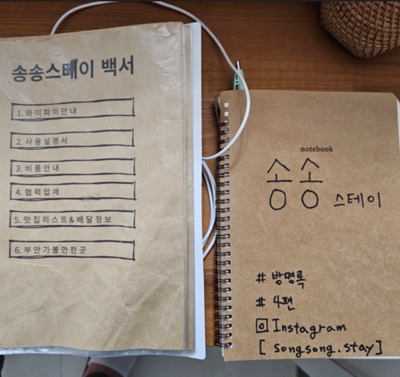 송송스테이 백서
1. 와이파이안내
2. 사용설명서
3. 비품안내
4. 협력업체
5. 맛집리스트&배달정보
6. 부안가볼만한곳
notebook
송송
스테이
# 방명록
# 4편
Instagram
[ songsong.stay]